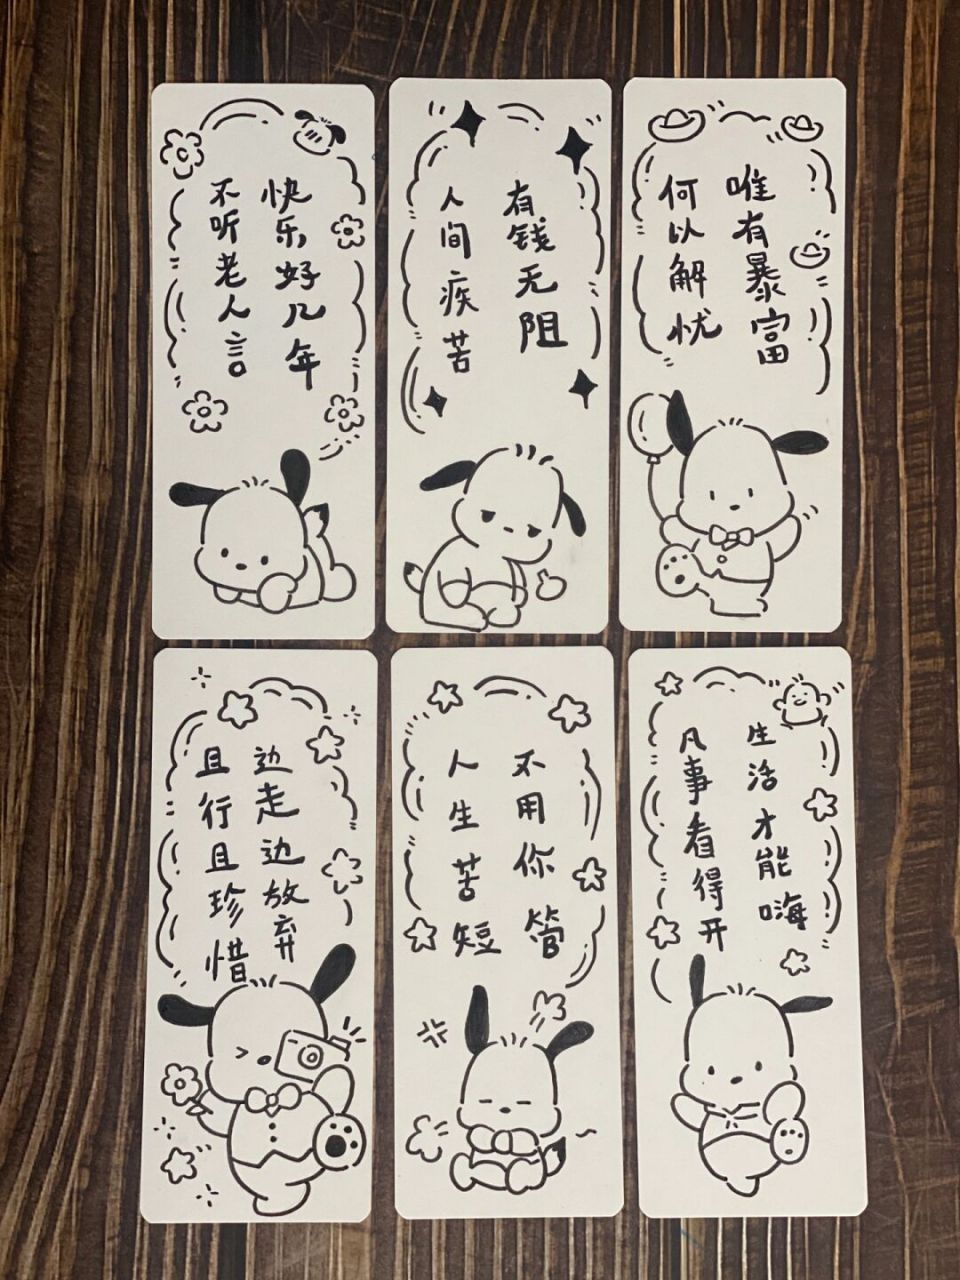 不听老人言
快乐好几年
人间疾苦
有钱无阻
何以解忧
唯有暴富
且行且珍惜
边走边放弃
人生苦短
不用你管
凡事看得开
生活才能嗨